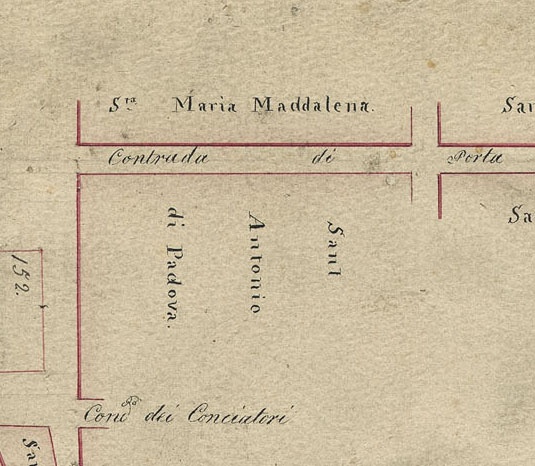 Sta Maria Maddalena.
San
Contrada di Porta
Sa
Sant
Antonio
di Padova.
152.
Conda dei Conciatori
Sa